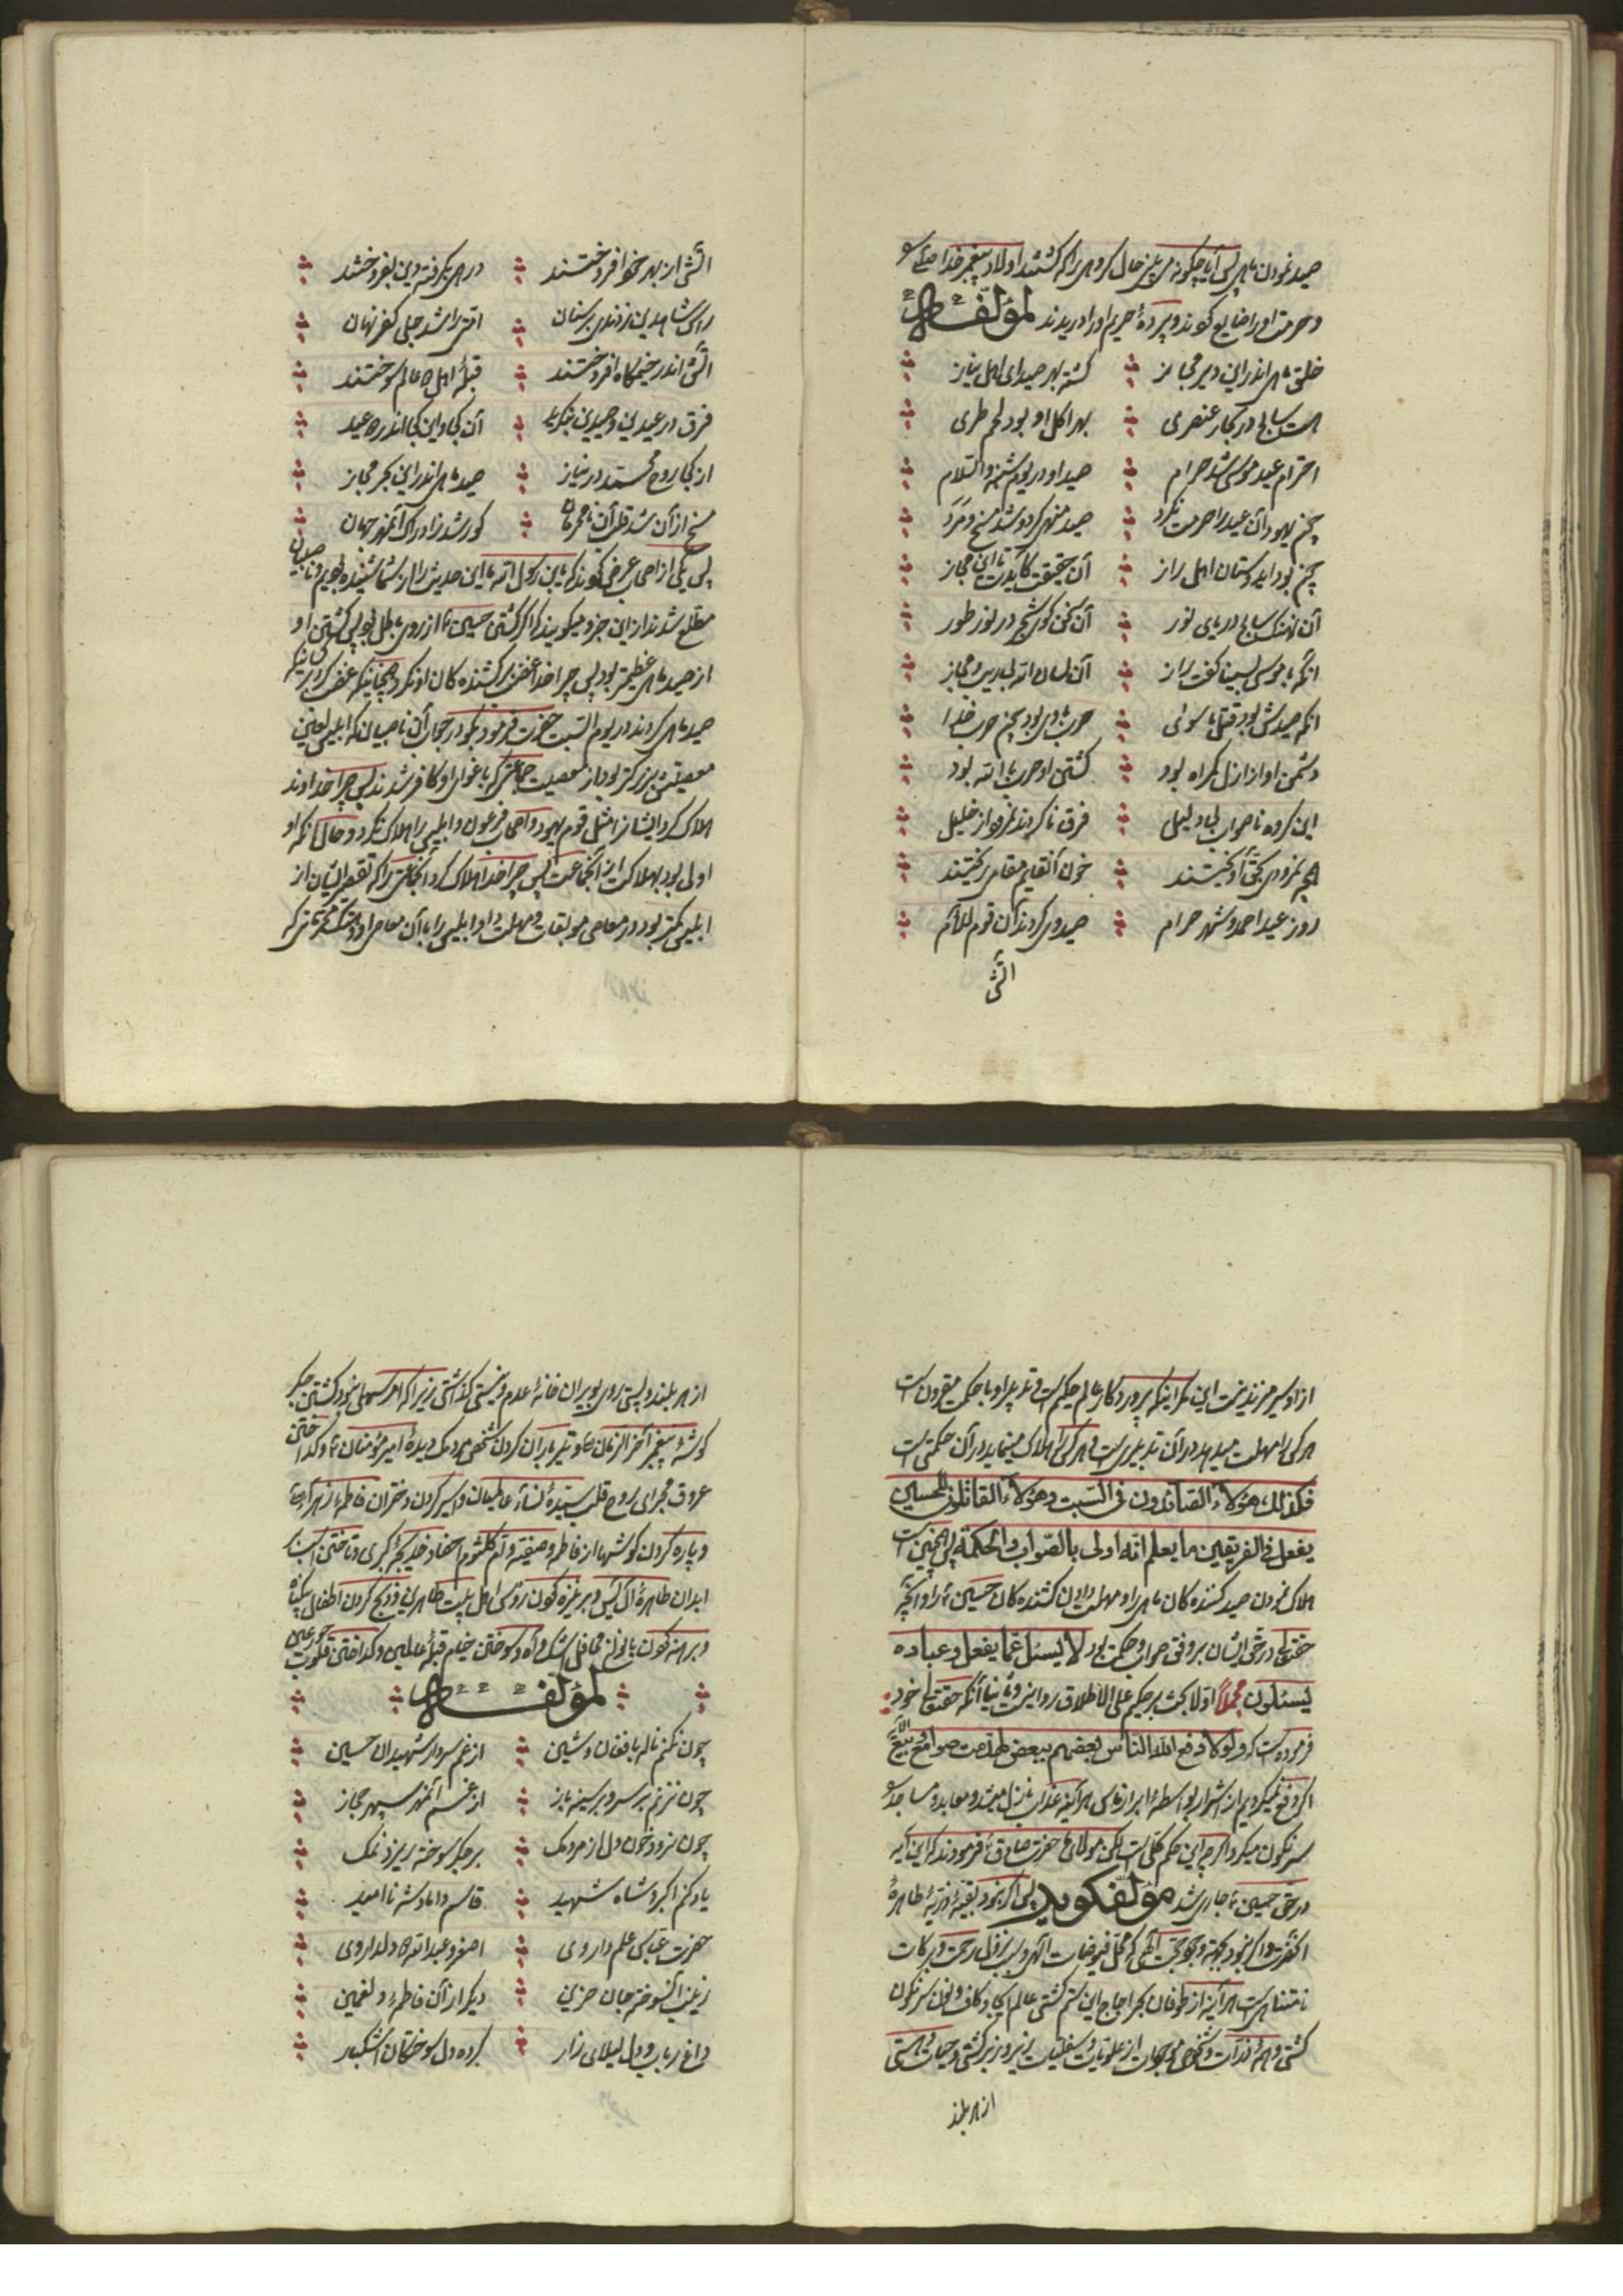 صید نمودن ماهی پس آیا چگونه می‌بینی حال گروهی را که کشتند اولاد پیغمبر خدا
و حرمت او را ضایع کردند و پردهٔ حریم او را دریدند لمؤلفه
خلق ماهی اندر این دیر مجاز گشته بهر صید ای اهل نیاز
هست سابح در بحار عنصری بهر اکل او بود لحم طری
احترام عید موسی شد حرام صید او در یوم شنبه والسلام
چون یهود آن عید را حرمت نکرد صید منهی کرد و شد مسخ و مرد
چون بود ای دوستان اهل راز آن حقیقت کایدت این مجاز
آن نهنگ سابح دریای نور آن سخن گوی شجر در نور طور
آنکه با موسی بسینا گفت راز آن لسان الله بی ریب و مجاز
آنکه صیدش بود قتل ماسوی حرب با وی بود چون حرب خدا
دشمن او از ازل گمراه بود کشتی او حرب با الله بود
این گروه ناصواب بی دلیل فرق ناکردند نمرود از خلیل
روز عید احمد و شهر حرام صید وی کردند آن قوم
آتش
آتش از بهر خود افروختند درهمی بگرفته دین بفروختند
رأس شاه دین زدندی بر سنان امتی را شد جلی کفر نهان
آتش اندر خیمگاه افروختند قبلهٔ اهل عالم سوختند
فرق در عیدین و صیدین آن کجا و این کجا اندر عید
از کجا روح محمد در نیاز صید ماهی اندر این بحر مجاز
مسخ از آن شد قلب آن نامحرمان کور شد ز ادراک آنمه جهان
پس یکی از اصحاب عرض کرد که یابن رسول الله ما این حدیث را از شما شنیده بودیم و ناصبیان
مطلع شدند از این خبر و میگویند که اگر کشتن حسین ع از روی باطل بود پس کشتن او
از صید ماهی عظیمتر بود پس چرا خدا غضب بر کشنده‌گان او نکرد همچنانکه غضب کرد بر آنانیکه
صید ماهی کردند در یوم السبت حضرت فرمود بگو در جواب آن ناصبیان که ابلیس لعین
معصیتش بزرگتر بود از معصیت جماعتی که باغوای او کافر شدند پس چرا خداوند
هلاک کرد ایشان را مثل قوم یهود و اصحاب فرعون و ابلیس را هلاک نکرد و حال آنکه او
اولی بود بهلاکت از آنجماعت پس چرا خدا هلاک کرد آنجماعتی را که تقصیر ایشان از
ابلیس کمتر بود در معاصی موبقات و مهلت داد ابلیس را با آن معاصی
از او سر میزند نیست این مگر اینکه پروردگار عالم حکیم است و تدبیر او با حکمت مقرون است
هر کس را مهلت میدهد در آن تدبیریست و هر کس را هلاک مینماید در آن حکمتی است
فکذلک هؤلاء الصائدون فی السبت و هؤلاء القاتلون للحسین
یفعل فی الفریقین ما یعلم انه اولی بالصواب و الحکمة پس همچنین است
هلاک نمودن صید کننده‌گان ماهی را و مهلت دادن کشنده‌گان حسین ع را و آنچه
حقتعالی در حق ایشان بر وفق صواب و حکمت بود لا یسئل عما یفعل و عباده
یسئلون مجملاً اولا بحث بر حکیم علی الاطلاق روا نیست و ثانیا آنکه حقتعالی خود
فرموده است که ولولا دفع الله الناس بعضهم ببعض لهدمت صوامع و بیع الآیه
اگر دفع نمیکردیم از اشرار بواسطهٔ ابرار ناس هر آینه عذاب نازل میشد و معابد و مساجد
سرنگون میکرد اگر چه این حکم کلی است لکن مولای ما حضرت صادق ع فرمودند که این آیه
در حق حسین ع جاری شد مؤلف گوید پس اگر نبود بقیهٔ ذریهٔ طاهرهٔ
آنحضرت و اگر نبود وجود حجت الهی که محل فیوضات الهی و سبب نزول رحمت و برکات
نامتناهی است هر آینه از طوفان بحر امواج این ستم کشتی عالم ایجاد کاف و نون سرنگون
کشتی و همه ذرات و شخوص موجودات از علویات و سفلیات زیر و زبر کشتی و حیات و هستی
از هر بلند
از هر بلند و پستی روی بویران خانهٔ عدم و نیستی گذاشتی زیرا که امر سهلی نبود کشتن جگر
گوشهٔ پیغمبر آخر الزمان ص و تیرباران کردن شخص مردمک دیدهٔ امیر مؤمنان ع و گداختن
عروق مجرای روح قلب سیدهٔ نساء عالمیان و اسیر کردن دختران فاطمهٔ زهراء
و پاره کردن گوشها از فاطمه و صفیه و ام کلثوم احفاد خدیجهٔ کبری و تاختن اسب بر
ابدان طاهرهٔ آل یس و بر نیزه کردن رؤس اهل بیت طاهرین و ذبح کردن اطفال بیگناه
و برهنه کردن بانوان محافل اشک و آه و سوختن خیام قبلهٔ عالمین و گداختن قلوب حور عین
لمؤلفه
چون نکنم ناله بافغان و شین از غم سردار شهیدان حسین
چون نزنم بر سر و بر سینه باز از غم آنمه سپهر حجاز
چون نرود خون دل از مردمک بر جگر سوخته ریزد نمک
یاد کنم اکبر و شاه شهید قاسم داماد شه ناامید
حضرت عباس علمدار وی اصغر و عبدالله دلدار وی
زینب آنسوخته جان حزین دیگر از آن فاطمهٔ دلغمین
داغ رباب و دل لیلای زار کرده دل سوختگان اشکبار